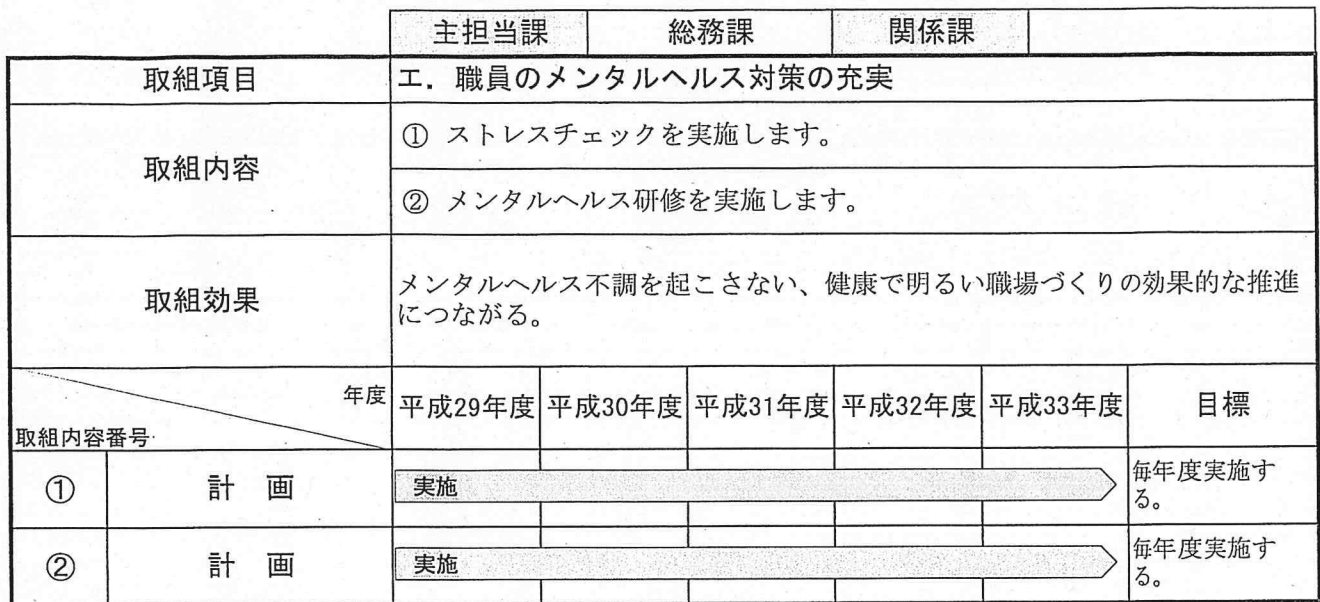 主担当課 総務課 関係課
取組項目 エ．職員のメンタルヘルス対策の充実
取組内容
① ストレスチェックを実施します。
② メンタルヘルス研修を実施します。
取組効果
メンタルヘルス不調を起こさない、健康で明るい職場づくりの効果的な推進
につながる。
年度
取組内容番号
平成29年度 平成30年度 平成31年度 平成32年度 平成33年度 目標
① 計 画 実施 毎年度実施す
る。
② 計 画 実施 毎年度実施す
る。